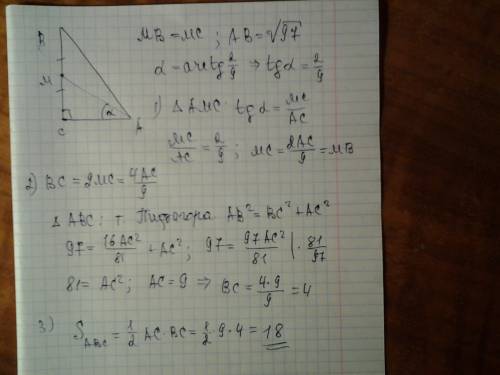 B
M
C
α
A
MB = MC ; AB = √97
α = arctg 2/9 ⇒ tgα = 2/9
1) Δ AMC tgα = MC/AC
MC/AC = 2/9 ; MC = 2AC/9 = MB
2) BC = 2MC = 4AC/9
Δ ABC ; т. Пифагора AB² = BC² + AC²
97 = 16AC²/81 + AC² ; 97 = 97AC²/81 | · 81/97
81 = AC² ; AC = 9 ⇒ BC = 4·9/9 = 4
3) S_ABC = 1/2 AC · BC = 1/2 · 9 · 4 = 18